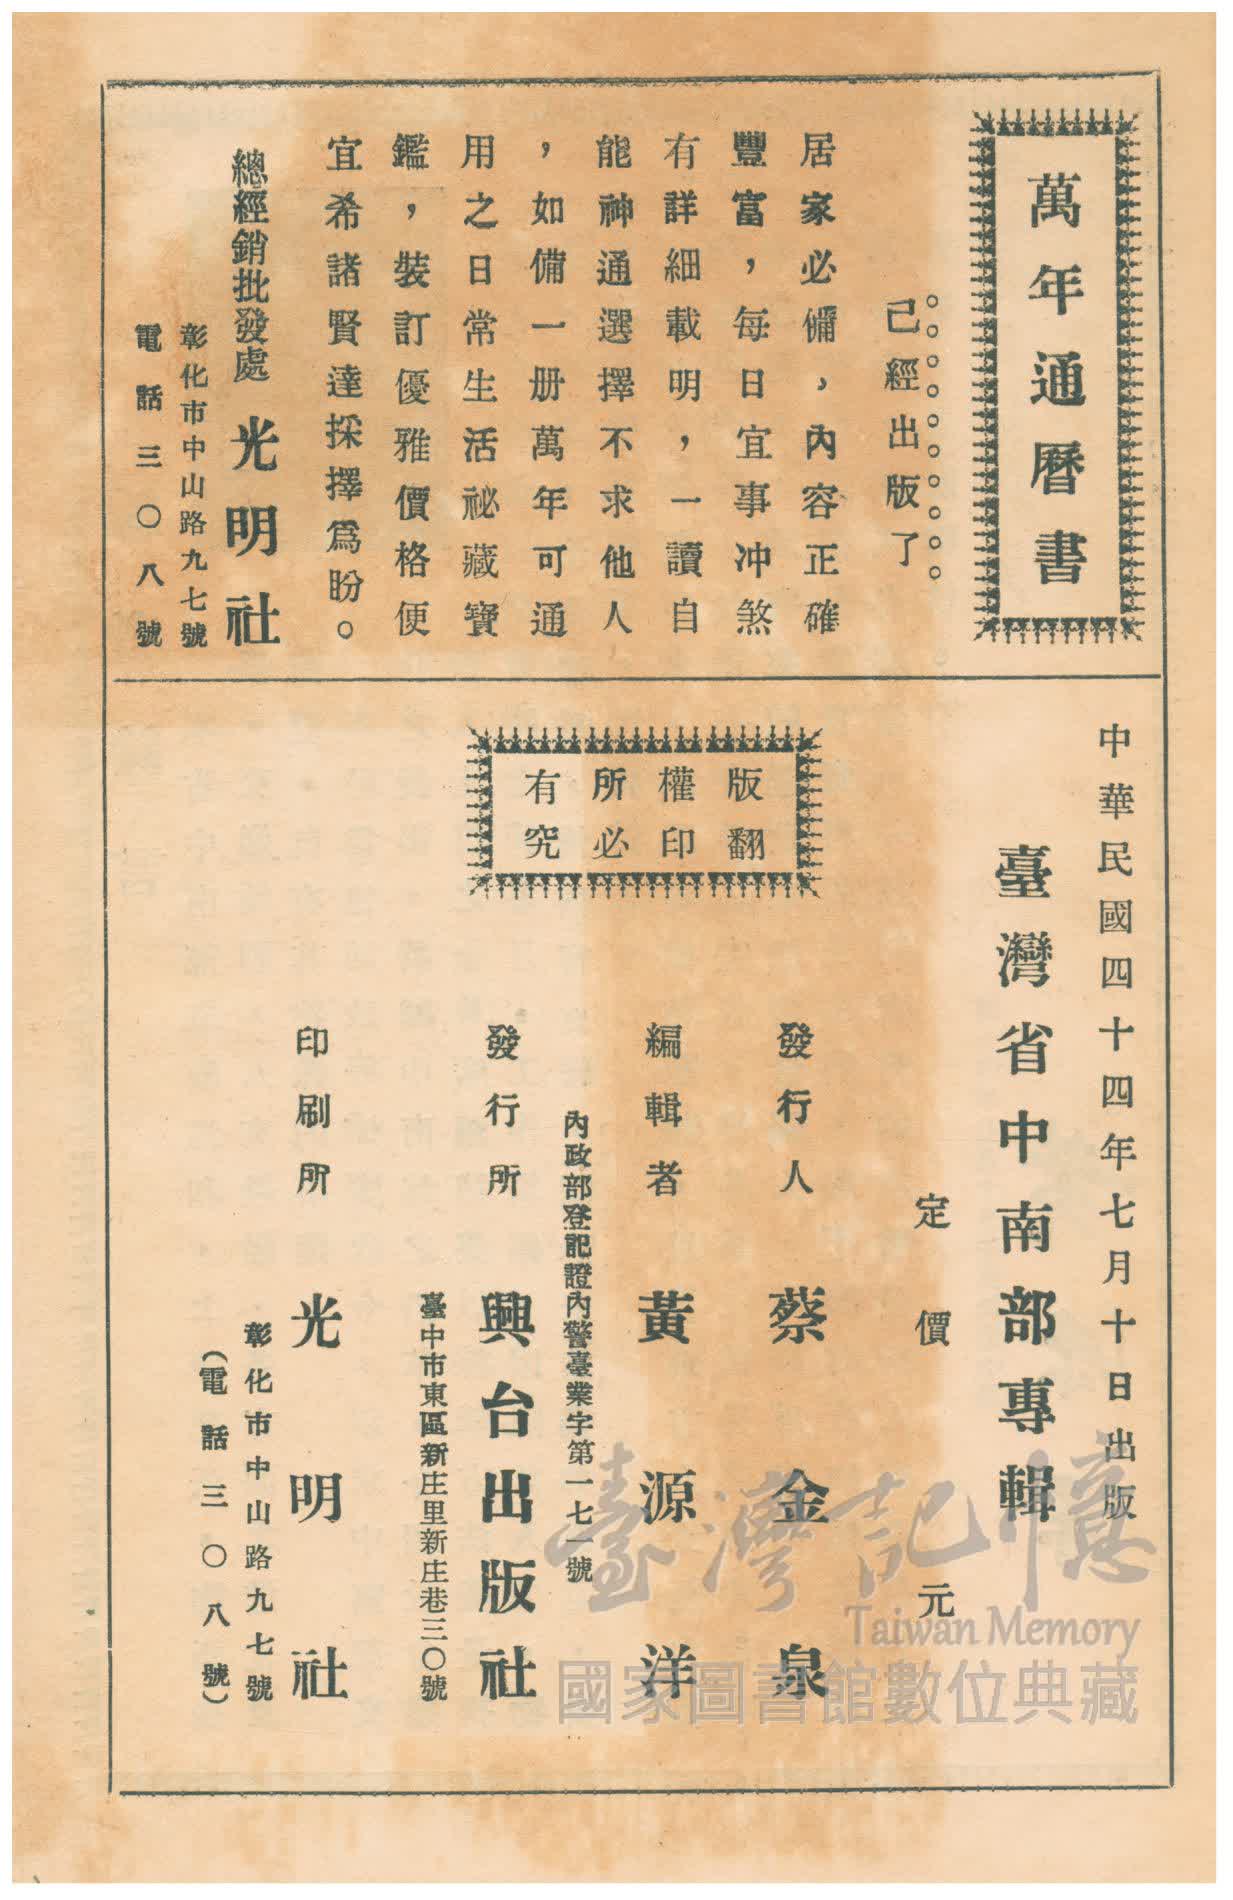 萬年通曆書
己經出版了
居家必備，內容正確
豐富，每日宜事冲煞
有詳細載明，一讀自
能神通選擇不求他人
，如備一册萬年可通
用之日常生活祕藏寶
鑑，裝訂優雅價格便
宜希諸賢達採擇爲盼。
總經銷批發處 光明社
彰化市中山路九七號
電話三〇八號
中華民國四十四年七月十日出版
臺灣省中南部專輯
定價 元
版權所有
翻印必究
發行人 蔡金泉
編輯者 黃源洋
內政部登記證內警臺業字第一七一號
發行所 興台出版社
臺中市東區新庄里新庄巷三〇號
印刷所 光明社
彰化市中山路九七號
（電話三〇八號）
臺灣記憶
Taiwan Memory
國家圖書館數位典藏